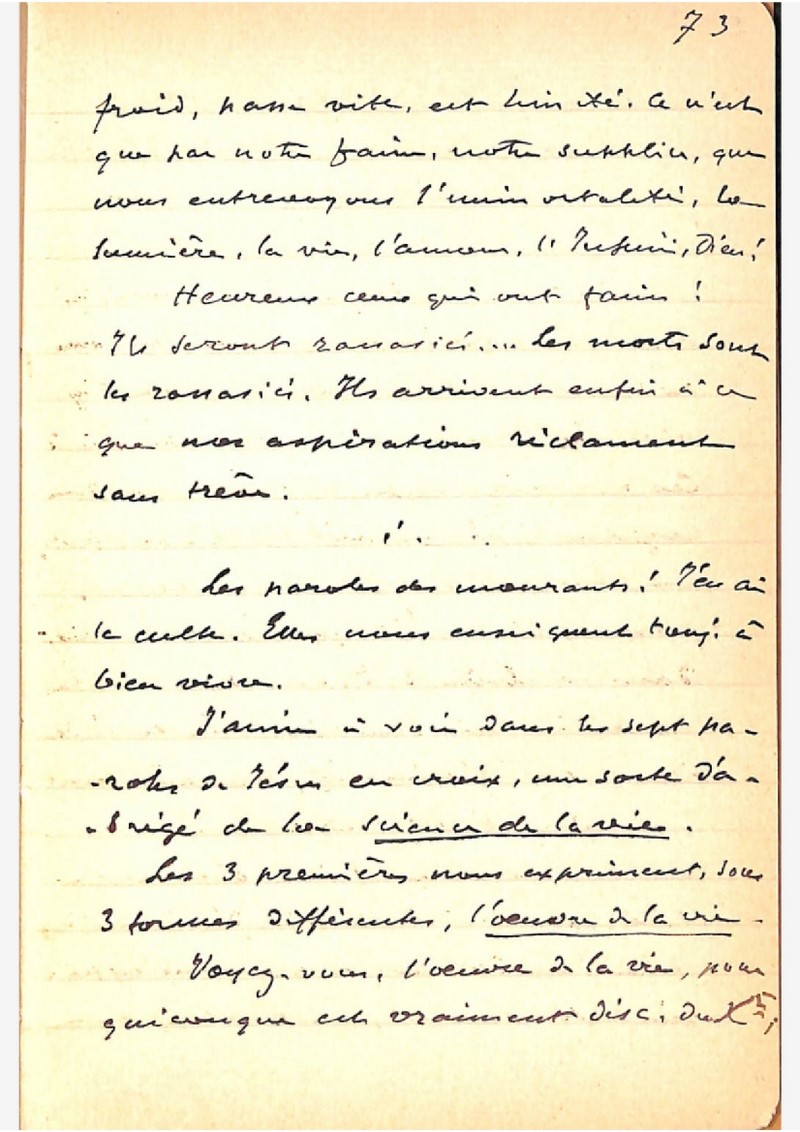 73
froid, passe vite, est limité. Ce n'est
que par notre faim, notre supplice, que
nous entrevoyons l'immortalité, la
lumière, la vie, l'amour, l'Infini, Dieu!
Heureux ceux qui ont faim!
Ils seront rassasiés... Les morts sont
les rassasiés. Ils arrivent enfin à ce
que nos aspirations réclament
sans trêve.
Les paroles des mourants! J'en ai
le culte. Elles nous enseignent touj. à
bien vivre.
J'aime à voir dans les sept pa-
-roles de Jésus en croix, une sorte d'a-
-brégé de la science de la vie.
Les 3 premières nous expriment, sous
3 formes différentes, l'oeuvre de la vie.
Voyez-vous, l'oeuvre de la vie, pour
quiconque est vraiment disc. du X